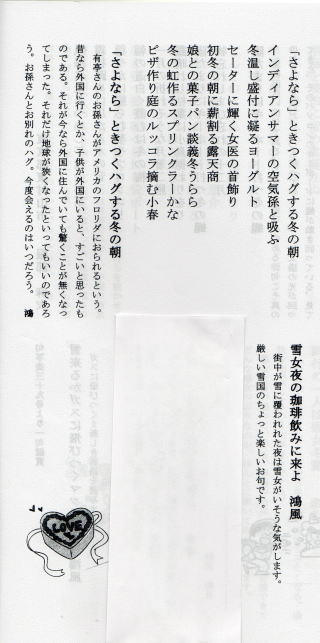 「さよなら」ときつくハグする冬の朝
インディアンサマーの空気孫と吸ふ
冬温し盛付に凝るヨーグルト
セーターに輝く女医の首飾り
初冬の朝に薪割る露天商
娘との菓子パン談義冬うらら
冬の虹作るスプリンクラーかな
ピザ作り庭のルッコラ摘む小春
「さよなら」ときつくハグする冬の朝
有亭さんのお孫さんがアメリカのフロリダにおられるという。
昔なら外国に行くとか、子供が外国にいると、すごいと思ったも
のである。それが今なら外国に住んでいても驚くことが無くなっ
てしまった。それだけ地球が狭くなったといってもいいのであろ
う。お孫さんとお別れのハグ。今度会えるのはいつだろう。 鴻
雪女夜の珈琲飲みに来よ 鴻風
街中が雪に覆われた夜は雪女がいそうな気がします。
厳しい雪国のちょっと楽しいお句です。
LOVE